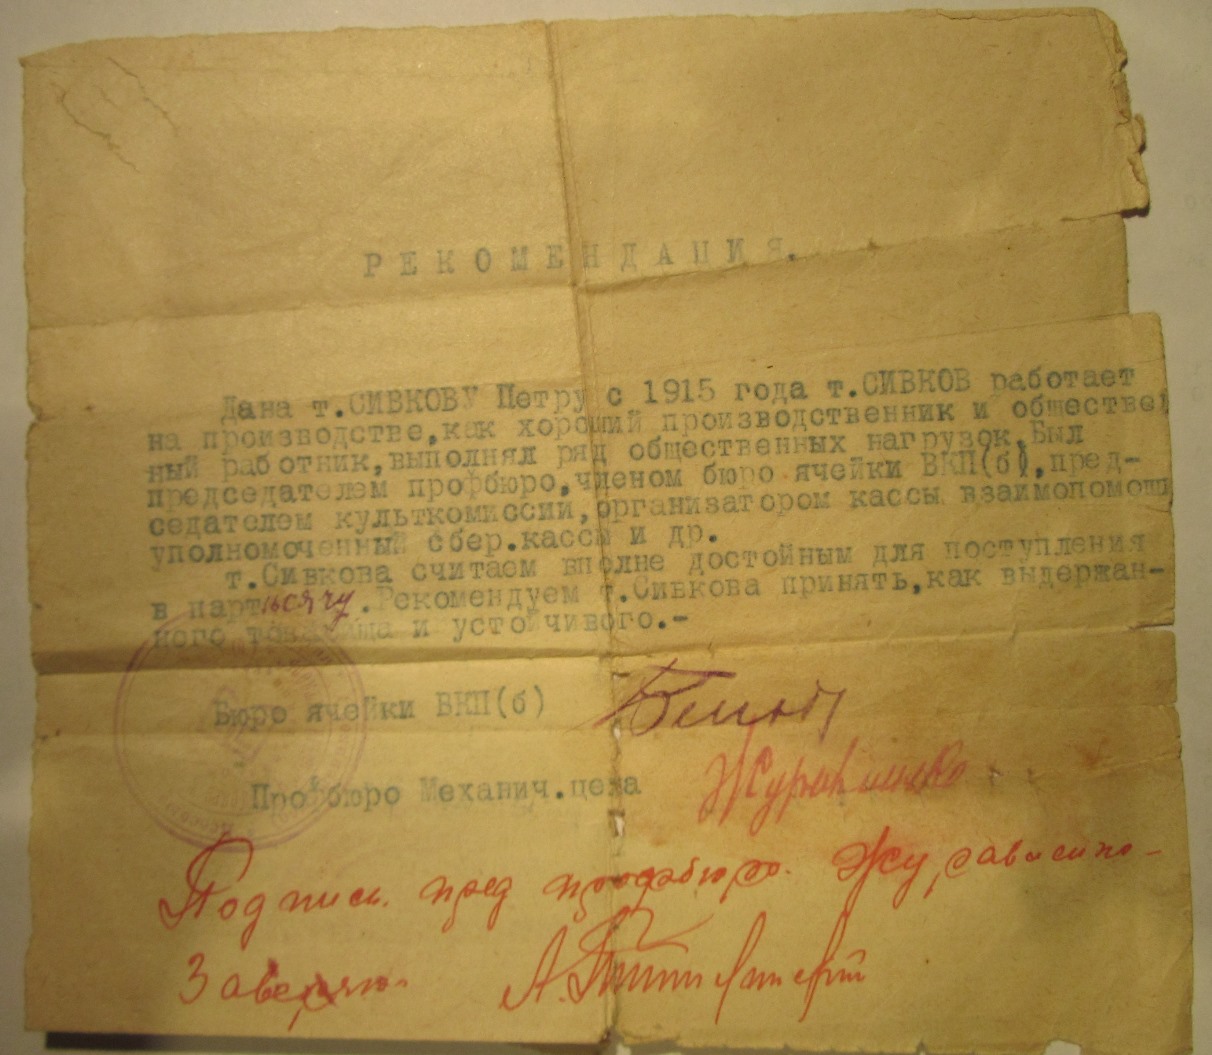 РЕКОМЕНДАЦИЯ.
Дана т.СИВКОВУ Петру с 1915 года т.СИВКОВ работает
на производстве,как хороший производственник и обществен
ный работник,выполнял ряд общественных нагрузок.Был
председателем профбюро,членом бюро ячейки ВКП(б),пред-
седателем культкомиссии,организатором кассы взаимопомощи
уполномоченный сбер.кассы и др.
т.Сивкова считаем вполне достойным для поступления
в парттысячу.Рекомендуем т.Сивкова принять,как выдержан-
ного товарища и устойчивого.-
Бюро ячейки ВКП(б)
Профбюро Механич.цеха
Подпись пред профбюро.
Заверяю. А.